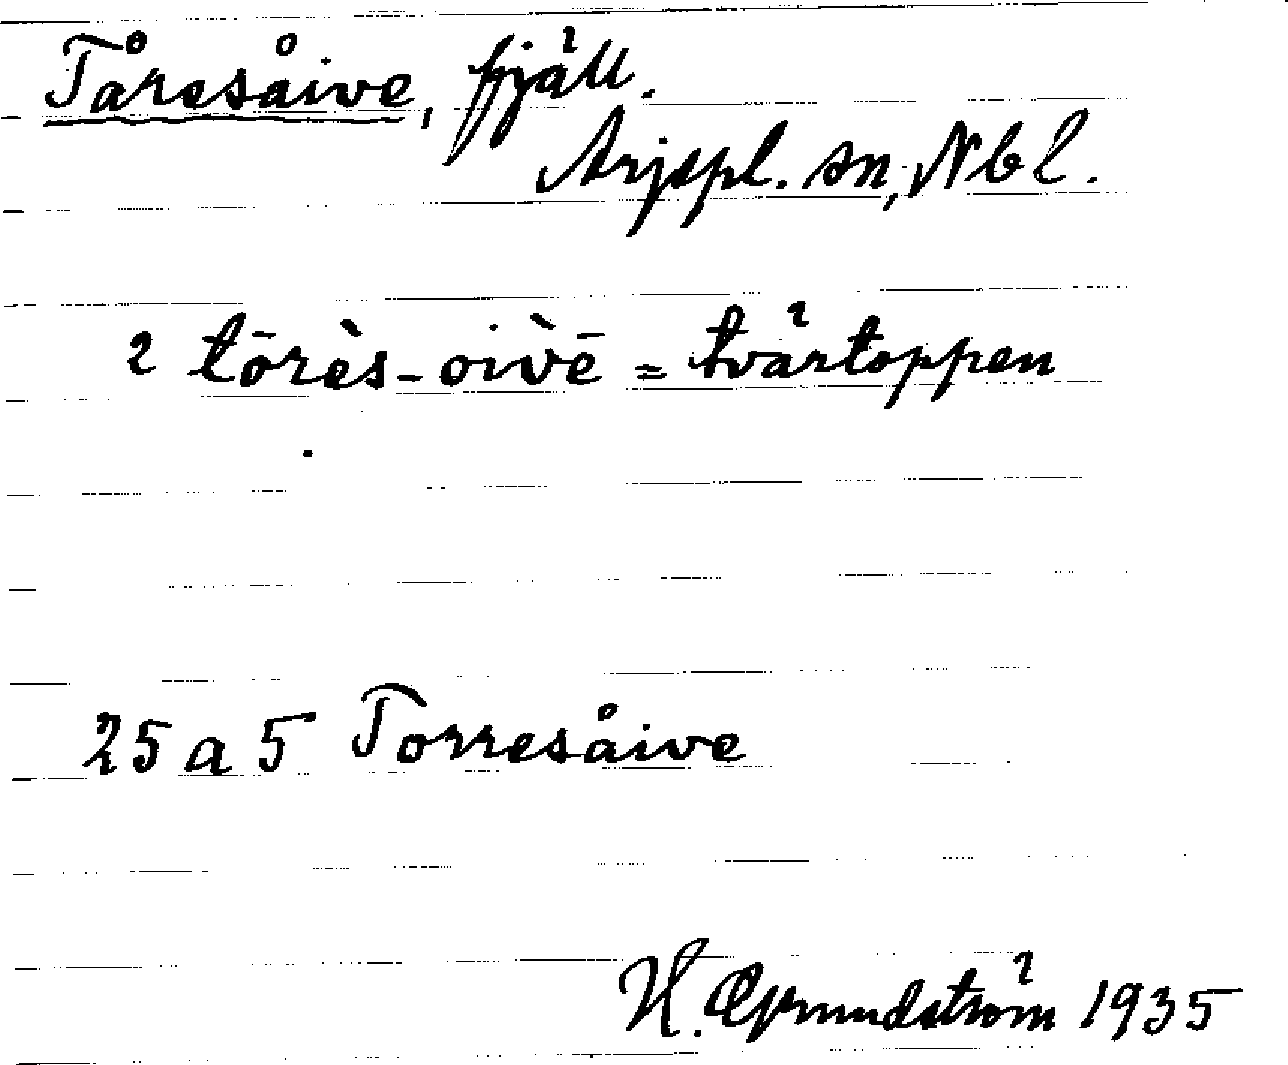 Tåresåive, fjäll.
Arjspl. sn, Nbl.
2 tōrès-oìvē = tvärtoppen
25 a 5 Torresåive
H. Grundström 1935